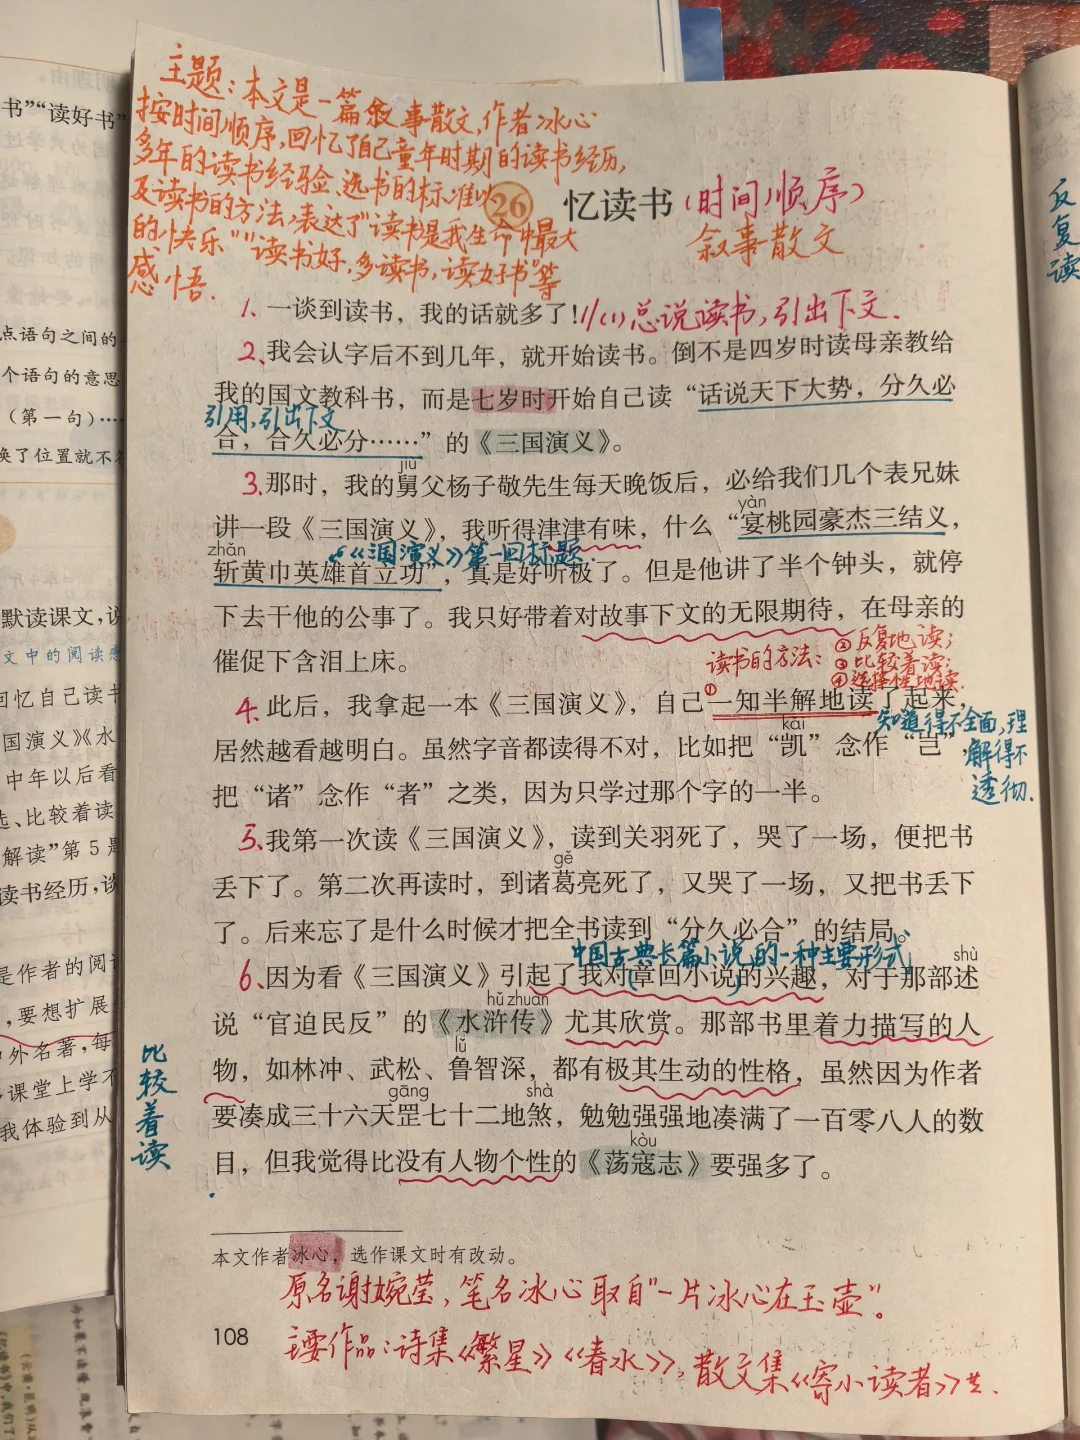 主题：本文是一篇叙事散文，作者冰心
按时间顺序，回忆了自己童年时期的读书经历，
多年的读书经验、选书的标准以
及读书的方法，表达了“读书是我生命中最大
的快乐”“读书好，多读书，读好书”等
感悟．
26 忆读书（时间顺序）
叙事散文
1、一谈到读书，我的话就多了！//(1)总说读书，引出下文．
2、我会认字后不到几年，就开始读书。倒不是四岁时读母亲教给
我的国文教科书，而是七岁时开始自己读“话说天下大势，分久必
引用，引出下文
合，合久必分……”的《三国演义》。
jiù
3、那时，我的舅父杨子敬先生每天晚饭后，必给我们几个表兄妹
yàn
讲一段《三国演义》，我听得津津有味，什么“宴桃园豪杰三结义，
zhǎn
《三国演义》第一回标题．
斩黄巾英雄首立功”，真是好听极了。但是他讲了半个钟头，就停
下去干他的公事了。我只好带着对故事下文的无限期待，在母亲的
催促下含泪上床。
读书的方法：②反复地读；
③比较着读；
④选择性地读．
①
4、此后，我拿起一本《三国演义》，自己一知半解地读了起来，
知道得不全面，理
解得不
透彻．
kǎi
居然越看越明白。虽然字音都读得不对，比如把“凯”念作“岂”，
把“诸”念作“者”之类，因为只学过那个字的一半。
5、我第一次读《三国演义》，读到关羽死了，哭了一场，便把书
gě
丢下了。第二次再读时，到诸葛亮死了，又哭了一场，又把书丢下
了。后来忘了是什么时候才把全书读到“分久必合”的结局。
中国古典长篇小说的一种主要形式
shù
6、因为看《三国演义》引起了我对（章回小说）的兴趣，对于那部述
hǔ zhuàn
说“官迫民反”的《水浒传》尤其欣赏。那部书里着力描写的人
lǔ
物，如林冲、武松、鲁智深，都有极其生动的性格，虽然因为作者
gāng shà
要凑成三十六天罡七十二地煞，勉勉强强地凑满了一百零八人的数
kòu
目，但我觉得比没有人物个性的《荡寇志》要强多了。
比较着读
本文作者冰心，选作课文时有改动。
原名谢婉莹，笔名冰心取自“一片冰心在玉壶”。
108
主要作品：诗集《繁星》《春水》，散文集《寄小读者》
反复读
书”“读好书”
点语句之间的
个语句的意思
（第一句）……
换了位置就不
默读课文，说
文中的阅读感
回忆自己读书
国演义》《水
中年以后看
选、比较着读
解读”第5题
读书经历，谈
是作者的阅读
，要想扩展
中外名著，每
课堂上学不
我体验到从